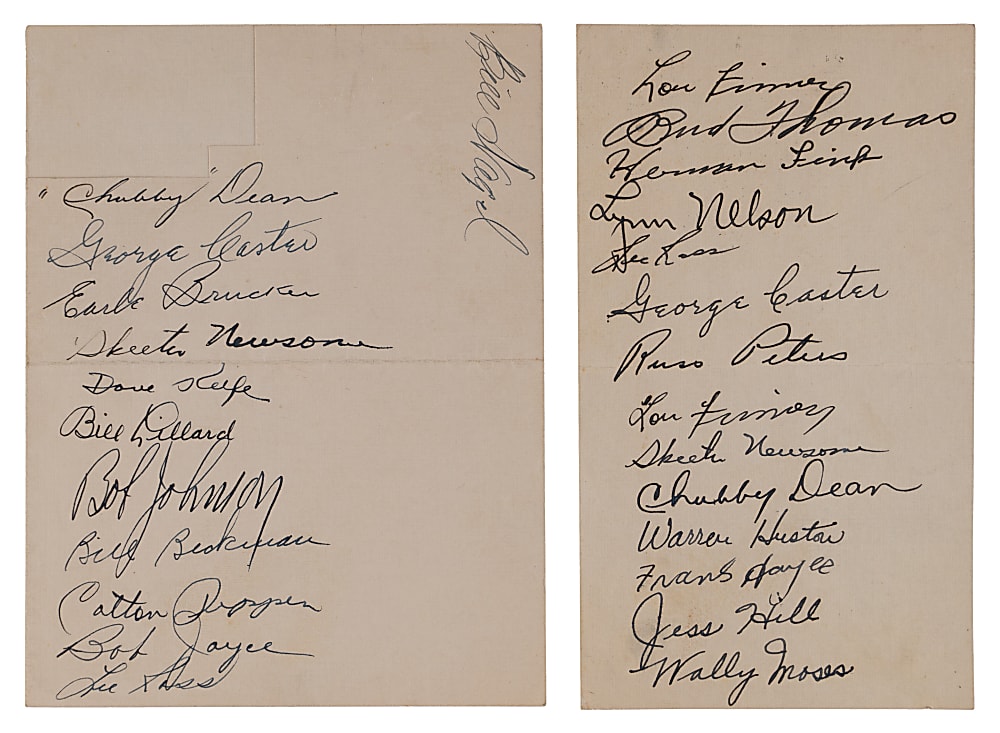 Bill Nagel
"Chubby" Dean
George Caster
Earle Brucker
Skeeter Newsome
Dave Keefe
Bill Dillard
Bob Johnson
Bill Beckman
Cotton Pippen
Bob Joyce
Lee Ross
Lou Finney
Bud Thomas
Herman Fink
Lynn Nelson
Lee Ross
George Caster
Russ Peters
Lou Finney
Skeeter Newsome
Chubby Dean
Warren Huston
Frank Hayes
Jess Hill
Wally Moses